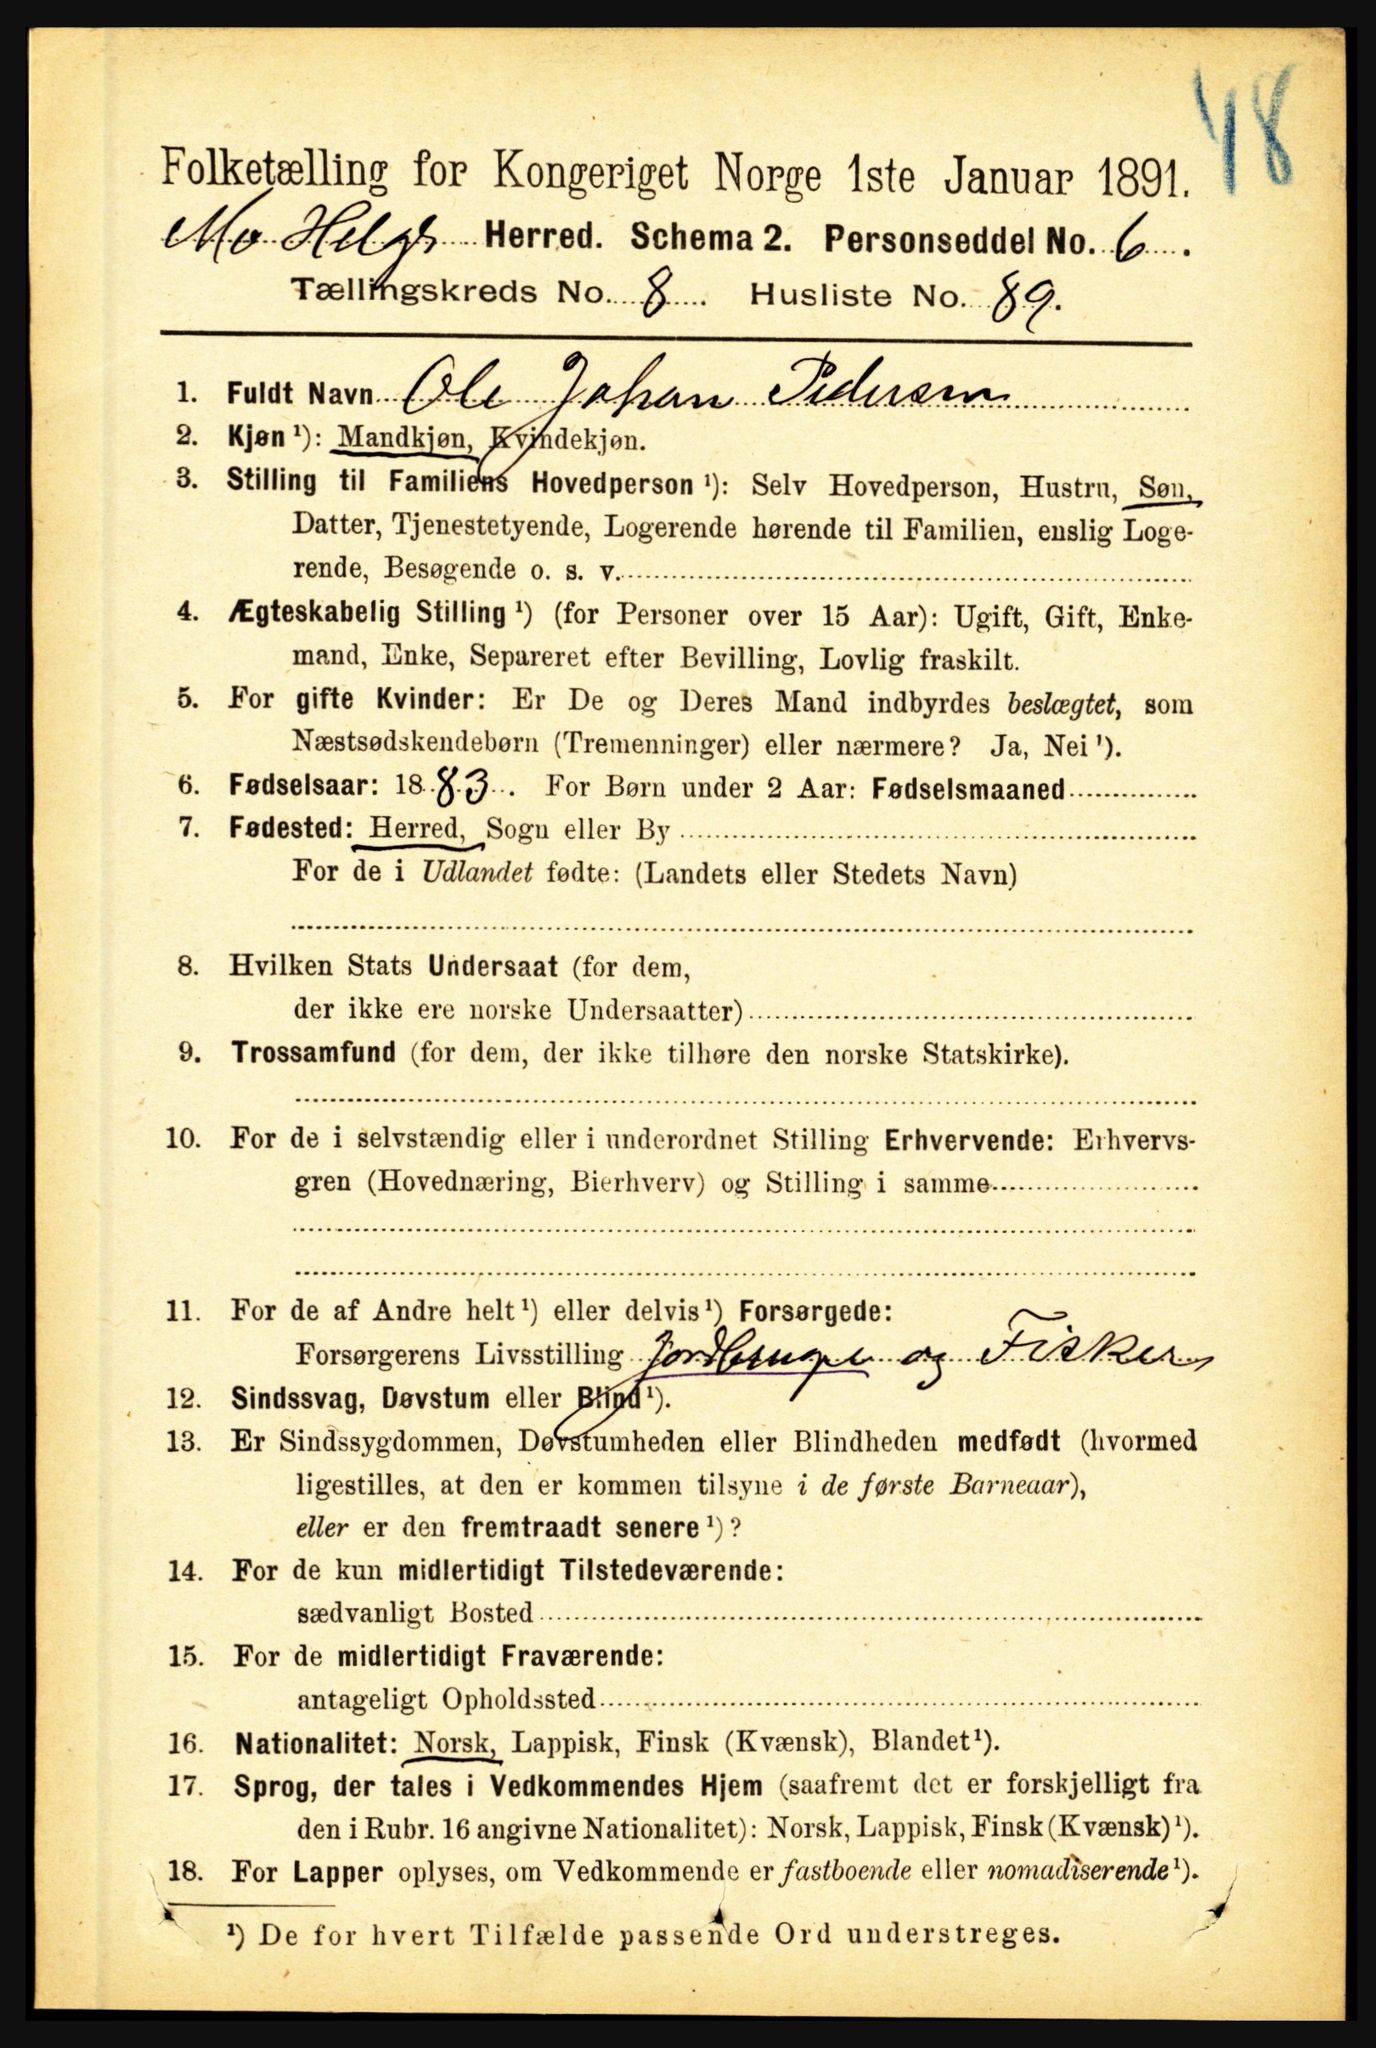 48
Folketælling for Kongeriget Norge 1ste Januar 1891.
Mo Helgl Herred. Schema 2. Personseddel No. 6.
Tællingskreds No. 8. Husliste No. 89.
1. Fuldt Navn Ole Johan Pedersen
2. Kjøn ¹): Mandkjøn, Kvindekjøn.
3. Stilling til Familiens Hovedperson ¹): Selv Hovedperson, Hustru, Søn,
Datter, Tjenestetyende, Logerende hørende til Familien, enslig Loge-
rende, Besøgende o. s. v.
4. Ægteskabelig Stilling ¹) (for Personer over 15 Aar): Ugift, Gift, Enke-
mand, Enke, Separeret efter Bevilling, Lovlig fraskilt.
5. For gifte Kvinder: Er De og Deres Mand indbyrdes beslægtet, som
Næstsødskendebørn (Tremenninger) eller nærmere? Ja, Nei ¹).
6. Fødselsaar: 1883. For Børn under 2 Aar: Fødselsmaaned
7. Fødested: Herred, Sogn eller By
For de i Udlandet fødte: (Landets eller Stedets Navn)
8. Hvilken Stats Undersaat (for dem,
der ikke ere norske Undersaatter)
9. Trossamfund (for dem, der ikke tilhøre den norske Statskirke).
10. For de i selvstændig eller i underordnet Stilling Erhvervende: Erhvervs-
gren (Hovednæring, Bierhverv) og Stilling i samme
11. For de af Andre helt ¹) eller delvis ¹) Forsørgede:
Forsørgerens Livsstilling Jordbruger og Fisker
12. Sindssvag, Døvstum eller Blind ¹).
13. Er Sindssygdommen, Døvstumheden eller Blindheden medfødt (hvormed
ligestilles, at den er kommen tilsyne i de første Barneaar),
eller er den fremtraadt senere ¹)?
14. For de kun midlertidigt Tilstedeværende:
sædvanligt Bosted
15. For de midlertidigt Fraværende:
antageligt Opholdssted
16. Nationalitet: Norsk, Lappisk, Finsk (Kvænsk), Blandet ¹).
17. Sprog, der tales i Vedkommendes Hjem (saafremt det er forskjelligt fra
den i Rubr. 16 angivne Nationalitet): Norsk, Lappisk, Finsk (Kvænsk) ¹).
18. For Lapper oplyses, om Vedkommende er fastboende eller nomadiserende ¹).
¹) De for hvert Tilfælde passende Ord understreges.